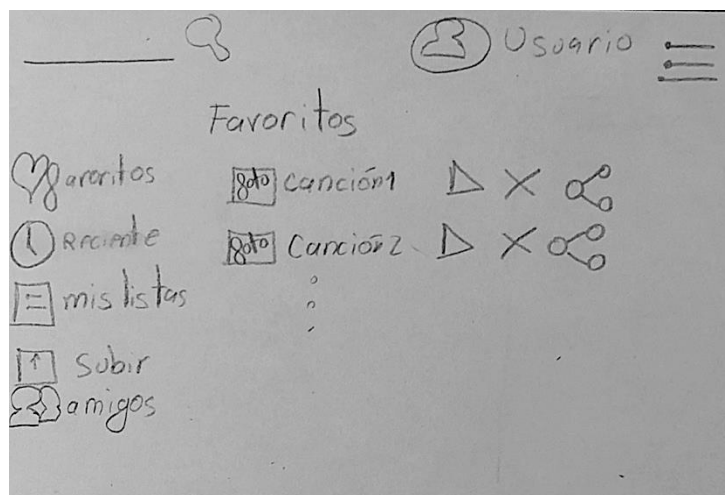 Usuario
Favoritos
favoritos
Reciente
mis listas
Subir
amigos
foto canción1
foto Canción2